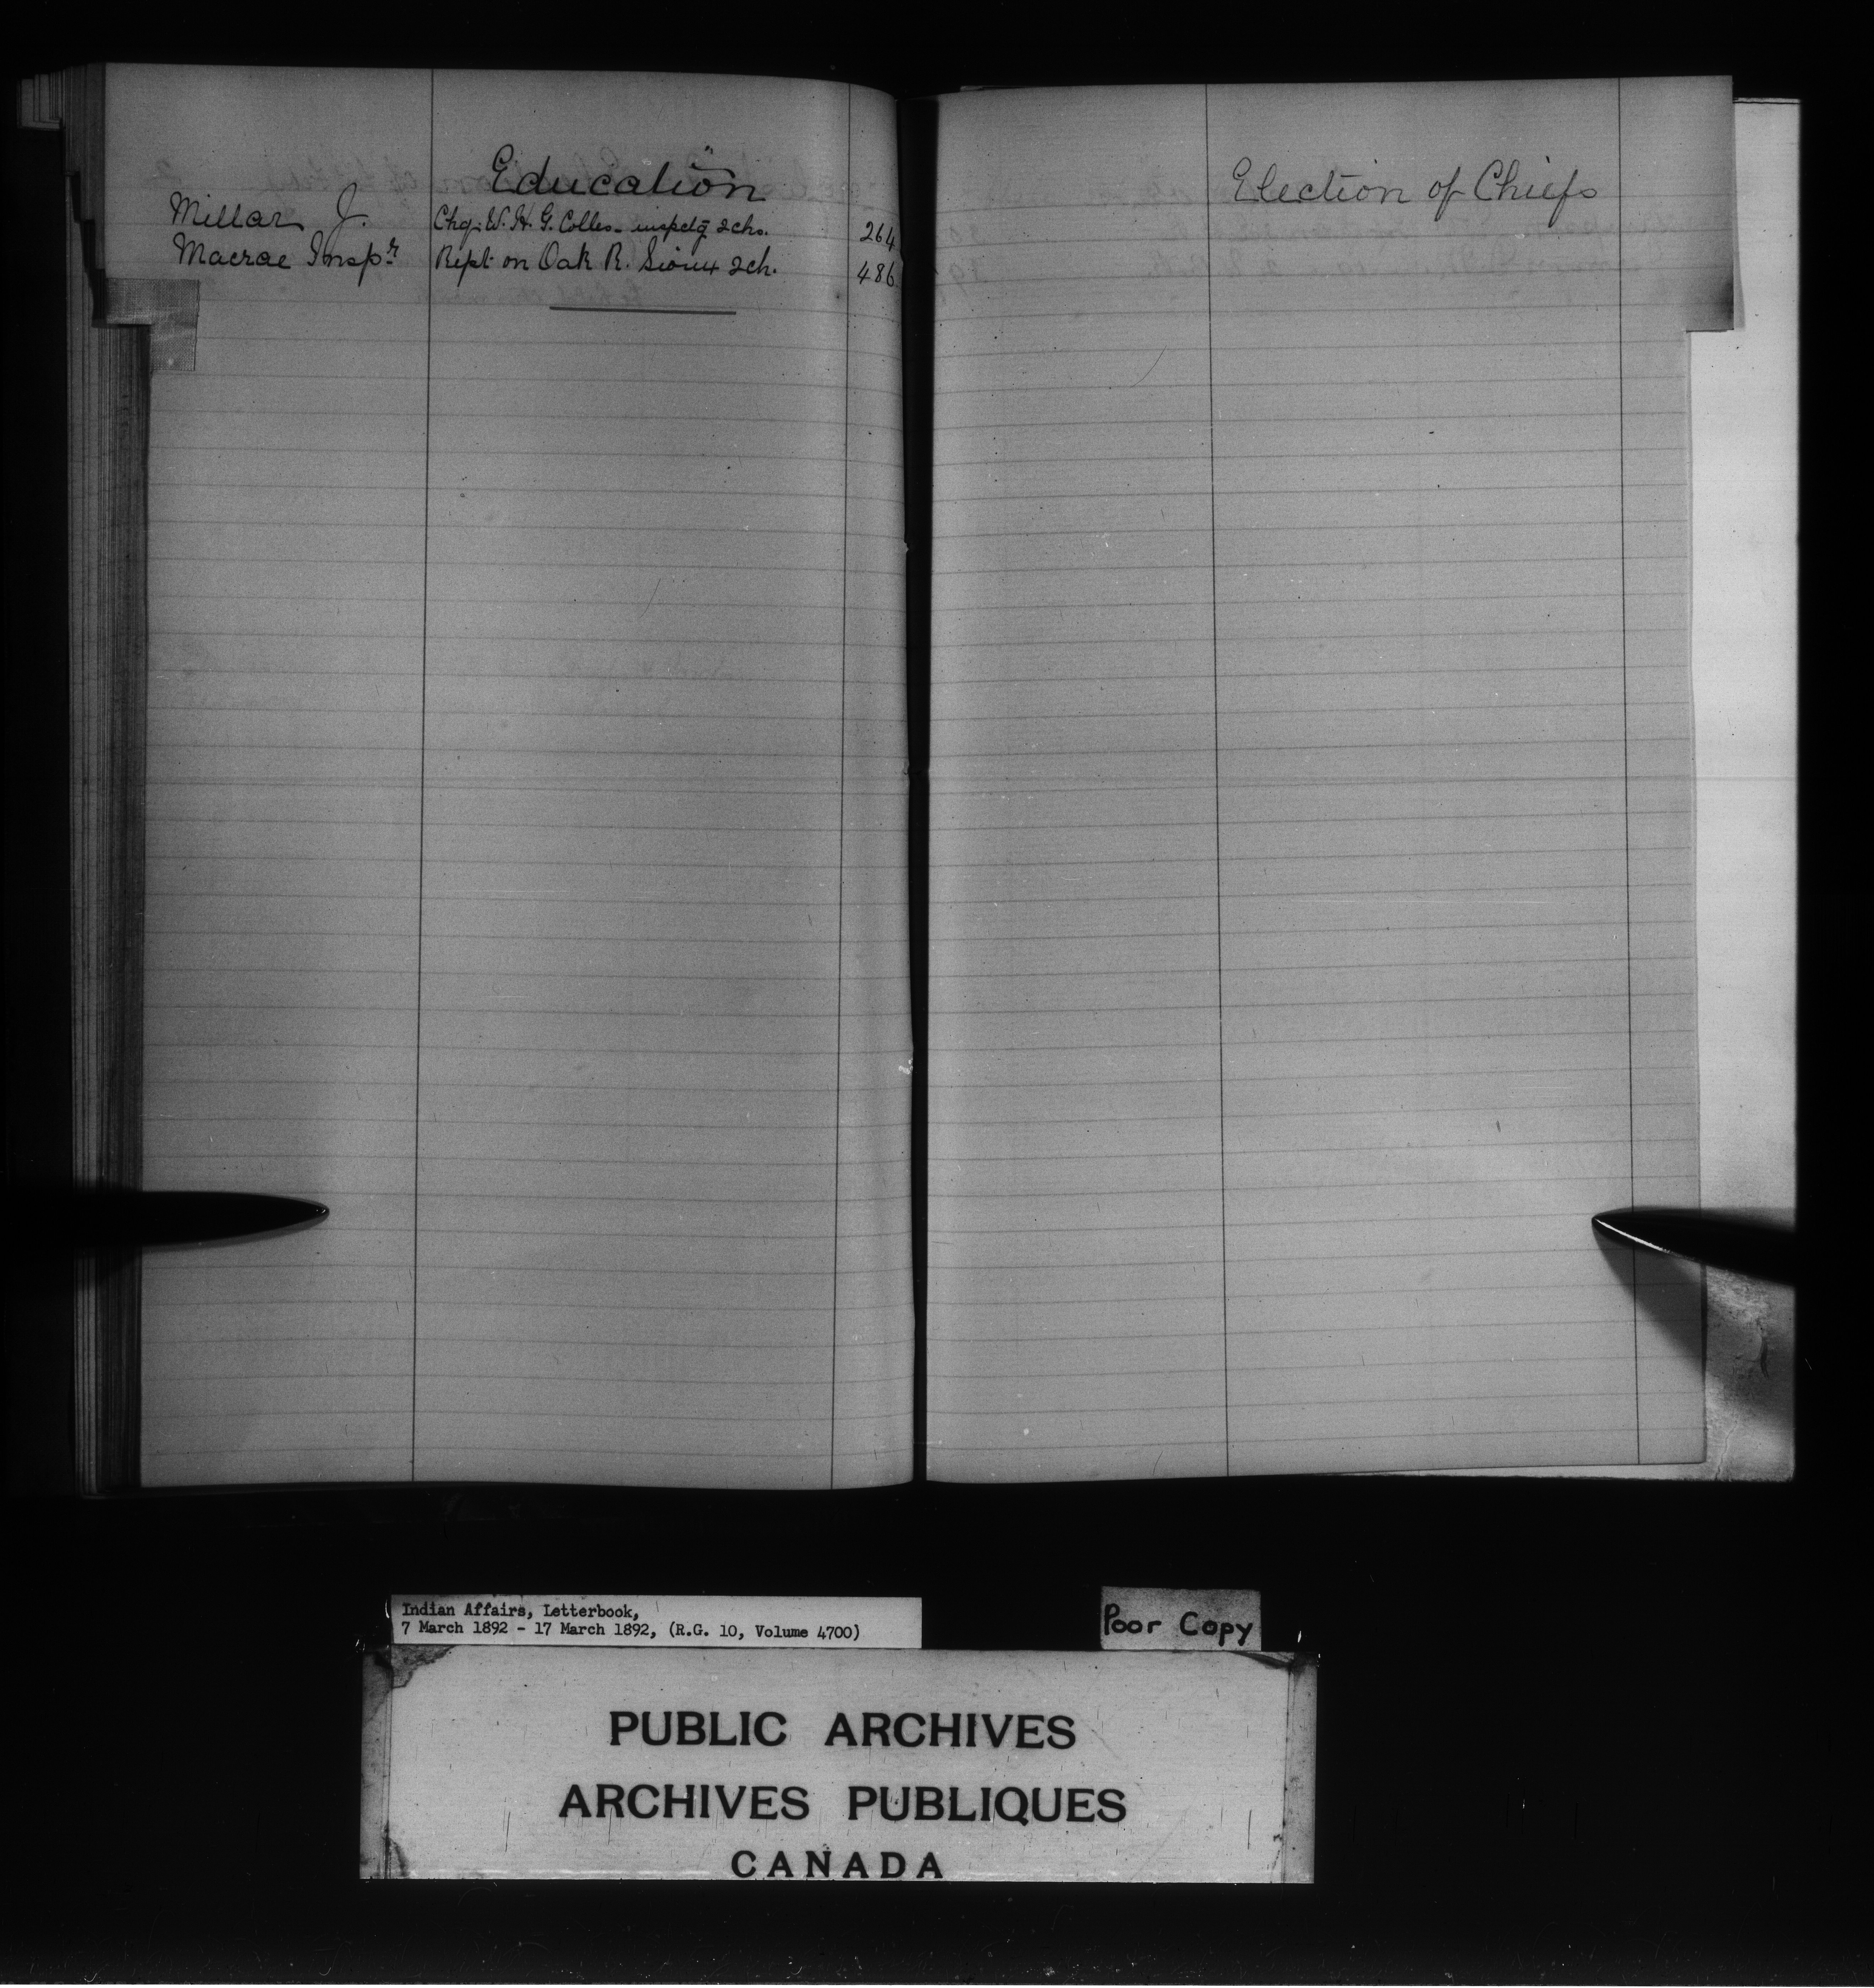 Education
Millar J. Chq. W. H. G. Colles - inspctg schs. 264
Macrae Inspr. Rept on Oak R. Sioux sch. 486
Election of Chiefs
Indian Affairs, Letterbook,
7 March 1892 - 17 March 1892, (R.G. 10, Volume 4700)
Poor Copy
PUBLIC ARCHIVES
ARCHIVES PUBLIQUES
CANADA